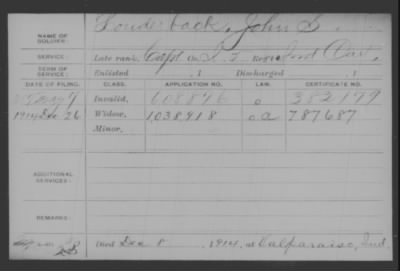 NAME OF SOLDIER: Louderback, John S.
SERVICE: Late rank, Corpl Co. I, Reg't Ind Cav.
TERM OF SERVICE: Enlisted , 1 Discharged , 1
DATE OF FILING. CLASS. APPLICATION NO. LAW. CERTIFICATE NO.
Invalid, 608846 382179
1914 Dec 26 Widow, 1038918 787687
Minor,
ADDITIONAL SERVICES:
REMARKS:
Died Dec 8 1914, at Valparaiso, Ind.